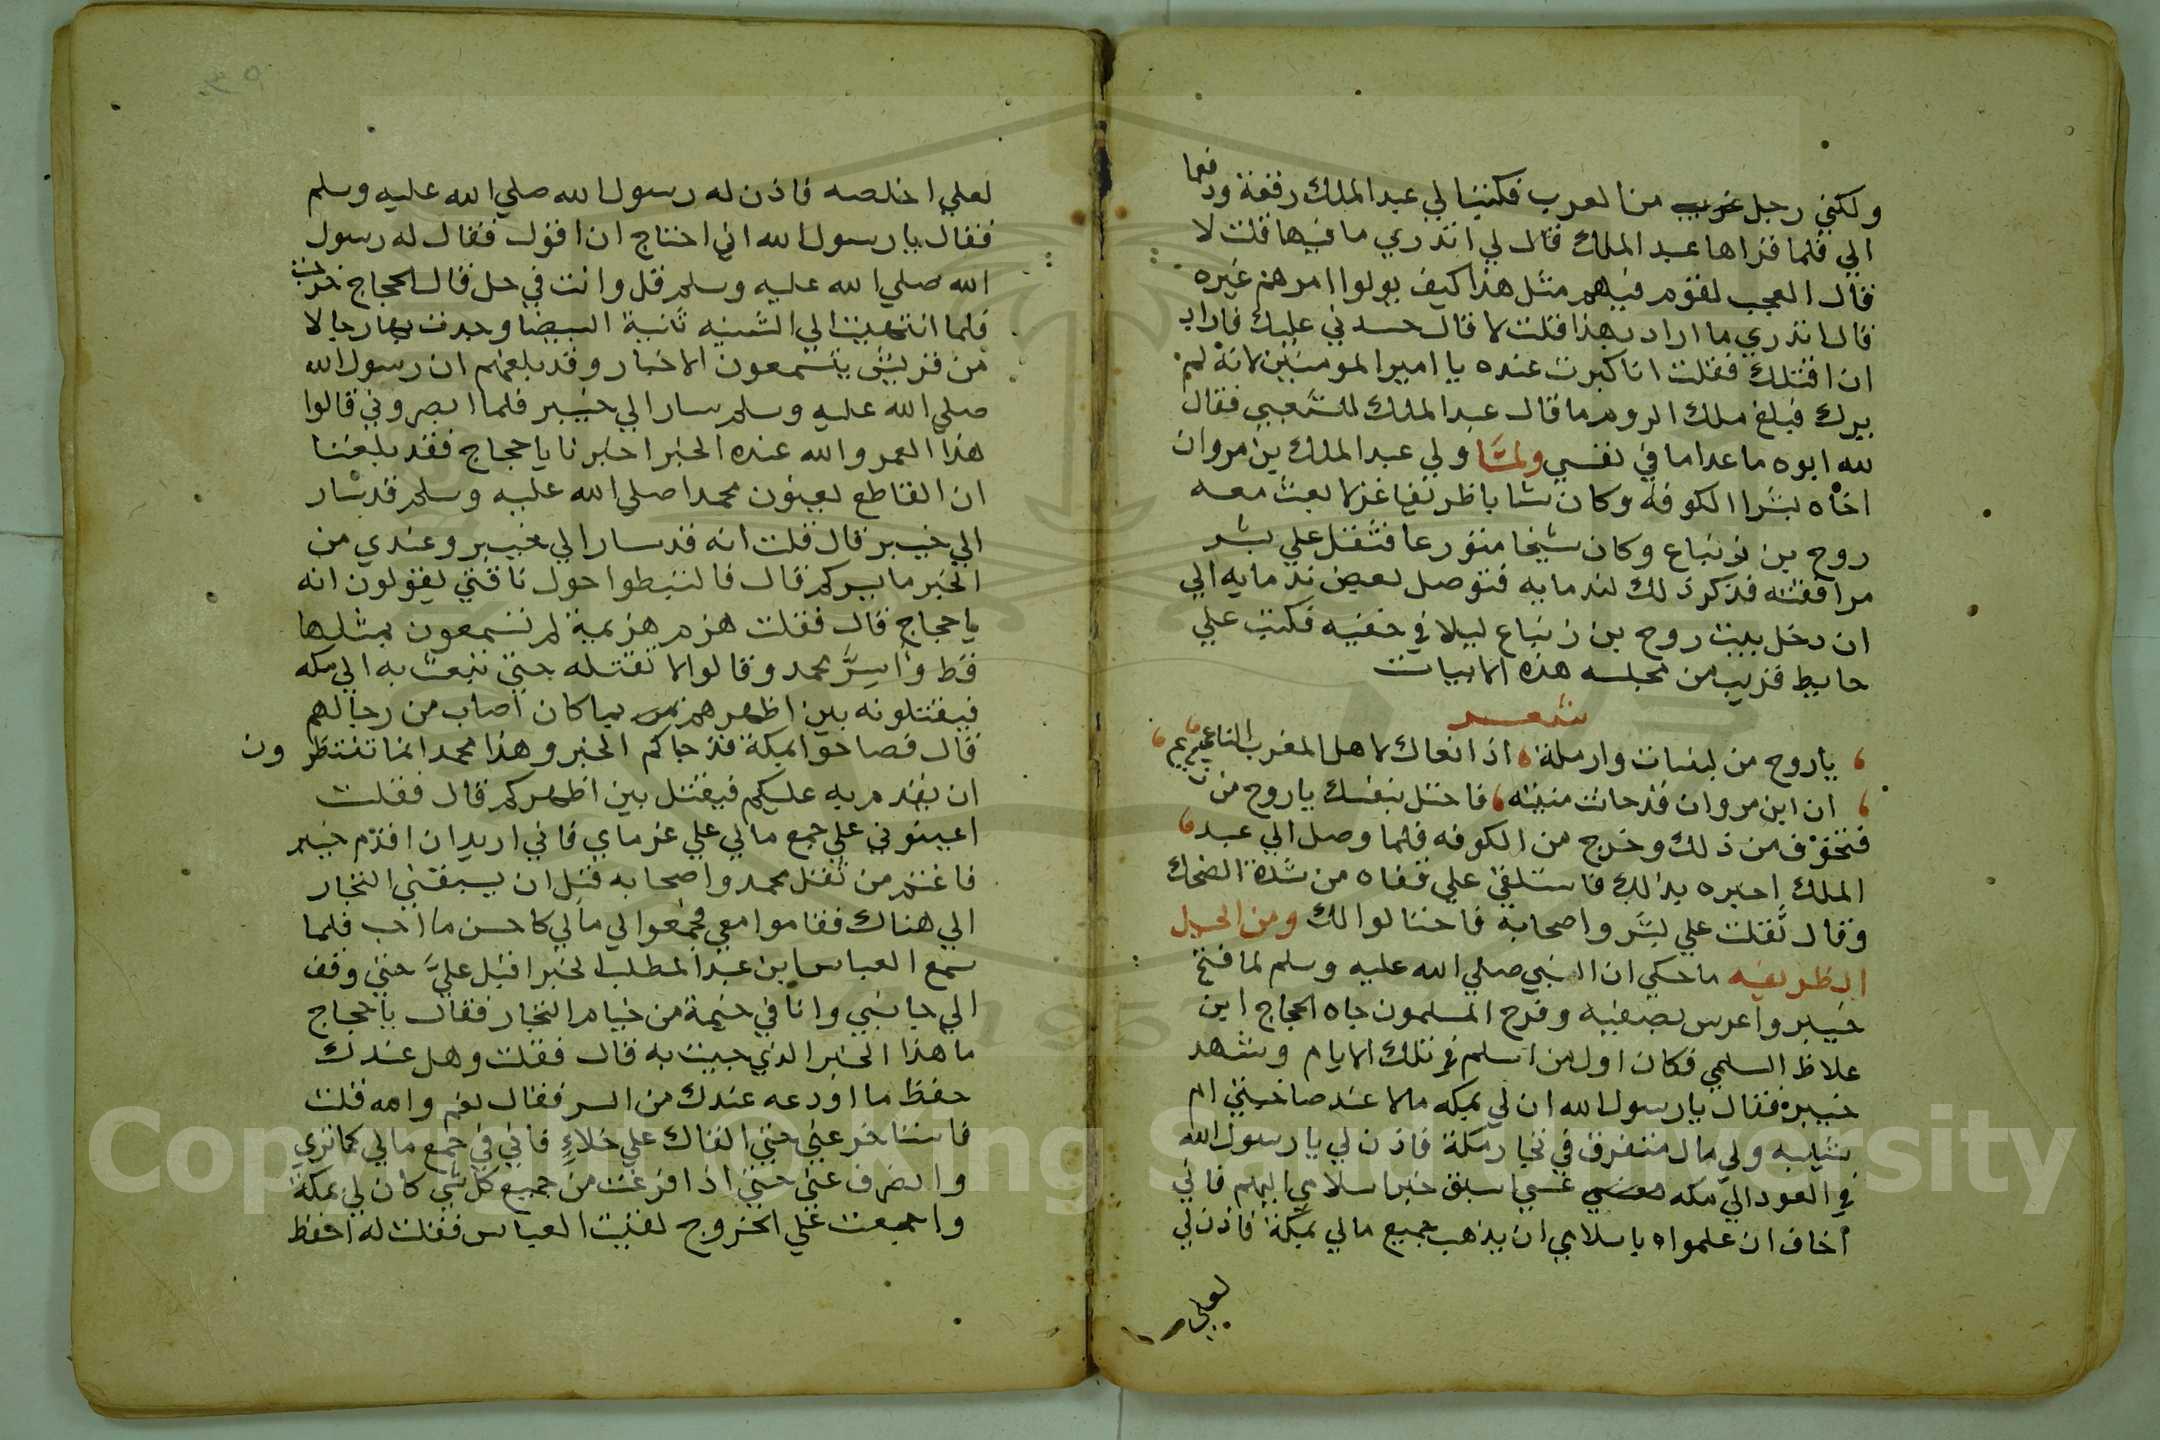 ولكني رجل من العرب فكتب الي عبد الملك رقعة ودفعها
الي فلما قراها عبد الملك قال لي اتدري ما فيها قلت لا
قال العجب لقوم فيهم مثل هذا كيف يولوا امرهم غيره
قال اتدري ما اراد بهذا قلت لا قال حسدني عليك فاراد
ان اقتلك فقلت انا كبرت عنده يا امير المومنين لانه لم
يرك فبلغ ملك الروم ما قال عبد الملك للشعبي فقال
لله ابوه ما عدا ما في نفسي ولما ولي عبد الملك بن مروان
اخاه بشرا الكوفه وكان شابا ظريفا غزلا بعث معه
روح بن زنباع وكان شيخا متورعا فثقل علي بشر
مرافقته فذكر ذلك لندمايه فتوصل بعض ندمايه الي
ان دخل بيت روح بن زنباع ليلا في خفيه فكتب علي
حايط قريب من مجلسه هذه الابيات
شعر
ياروح من لبنيات وارملة اذا نعاك لاهل المغرب الناعي
ان ابن مروان قد حانت منيته فاحتل بنفسك ياروح من
فتخوف من ذلك وخرج من الكوفه فلما وصل الي عبد
الملك اخبره بذالك فاستلقي علي قفاه من شدة الضحك
وقال ثقلت علي بشر واصحابه فاحتالوا لك ومن الحيل
الظريفه ما حكي ان النبي صلي الله عليه وسلم لما فتح
خيبر واعرس بصفيه وفرح المسلمون جاه الحجاج ابن
علاظ السلمي فكان اول من اسلم في تلك الايام وشهد
خيبره فقال يا رسول الله ان لي بمكه مالا عند صاحبتي ام
شيبه ولي مال متفرق في تجار مكة فاذن لي يا رسول الله
في العود الي مكه عسي اسبق خبر اسلامي اليهم فاني
اخاف ان علمواه باسلامي ان يذهب جميع مالي بمكة فاذن لي
لعلي
لعلي اخلصه فاذن له رسول الله صلي الله عليه وسلم
فقال يا رسول الله اني احتاج ان اقول فقال له رسول
الله صلي الله عليه وسلم قل وانت في حل قال الحجاج خرجت
فلما انتهيت الي الثنيه ثانية البيضا وجدت بها رجالا
من قريش يتسمعون الاخبار وقد بلغهم ان رسول الله
صلي الله عليه وسلم سار الي خيبر فلما ابصروني قالوا
هذا العمر والله عنده الخبر اخبرنا يا حجاج فقد بلغنا
ان القاطع يعنون محمدا صلي الله عليه وسلم قد سار
الي خيبر قال قلت انه قد سار الي خيبر وعندي من
الخبر ما يسركم قال فالتبطوا حول ناقتي يقولون انه
يا حجاج قال فقلت هزم هزيمة لم تسمعون بمثلها
قط وأسر محمد وقالوا لا نقتله حتي نبعث به الي مكه
فيقتلونه بين اظهرهم بما كان اصاب من رجالهم
قال فصاحوا بمكة قد جاكم الخبر وهذا محمد انما تنتظرون
ان يقدم به عليكم فيقتل بين اظهركم قال فقلت
اعينوني علي جمع مالي علي غرماي فاني اريد ان اقدم خيبر
فاغنم من ثقل محمد واصحابه قبل ان يسبقني التجار
الي هناك فقاموا معي فجمعوا لي مالي كاحسن ما احب فلما
سمع العباس ابن عبد المطلب الخبر اقبل عليَّ حتي وقف
الي جانبي وانا في خيمة من خيام التجار فقال يا حجاج
ما هذا الخبر الذي جيت به قال فقلت وهل عندك
حفظ ما اودعه عندك من السر فقال نعم والله قلت
فاستاخر عني حتي القاك علي خلاءٍ فاني في جمع مالي كما تري
وانصرف عني حتي اذا فرغت من جميع كل شي كان لي بمكة
واجمعت علي الخروج لقيت العباس فقلت له احفظ